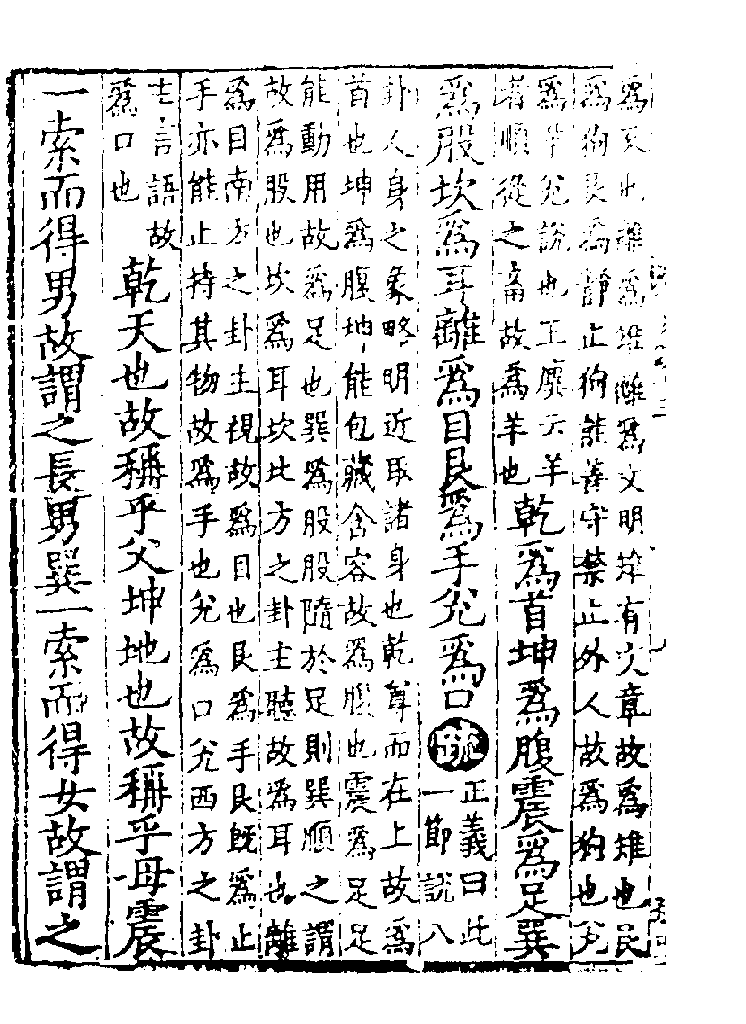 爲火也離爲雉離爲文明雉有文章故爲雉也艮
爲狗艮爲靜止狗能善守禁止外人故爲狗也兌
爲羊兌說也王廙云羊
者順從之畜故爲羊也
乾爲首坤爲腹震爲足巽
爲股坎爲耳離爲目艮爲手兌爲口
疏
正義曰此
一節說八
卦人身之象略明近取諸身也乾尊而在上故爲
首也坤爲腹坤能包藏含容故爲腹也震爲足足
能動用故爲足也巽爲股股隨於足則巽順之謂
故爲股也坎爲耳坎北方之卦主聽故爲耳也離
爲目南方之卦主視故爲目也艮爲手艮旣爲止
手亦能止持其物故爲手也兌爲口兌西方之卦
主言語故
爲口也
乾天也故稱乎父坤地也故稱乎母震
一索而得男故謂之長男巽一索而得女故謂之